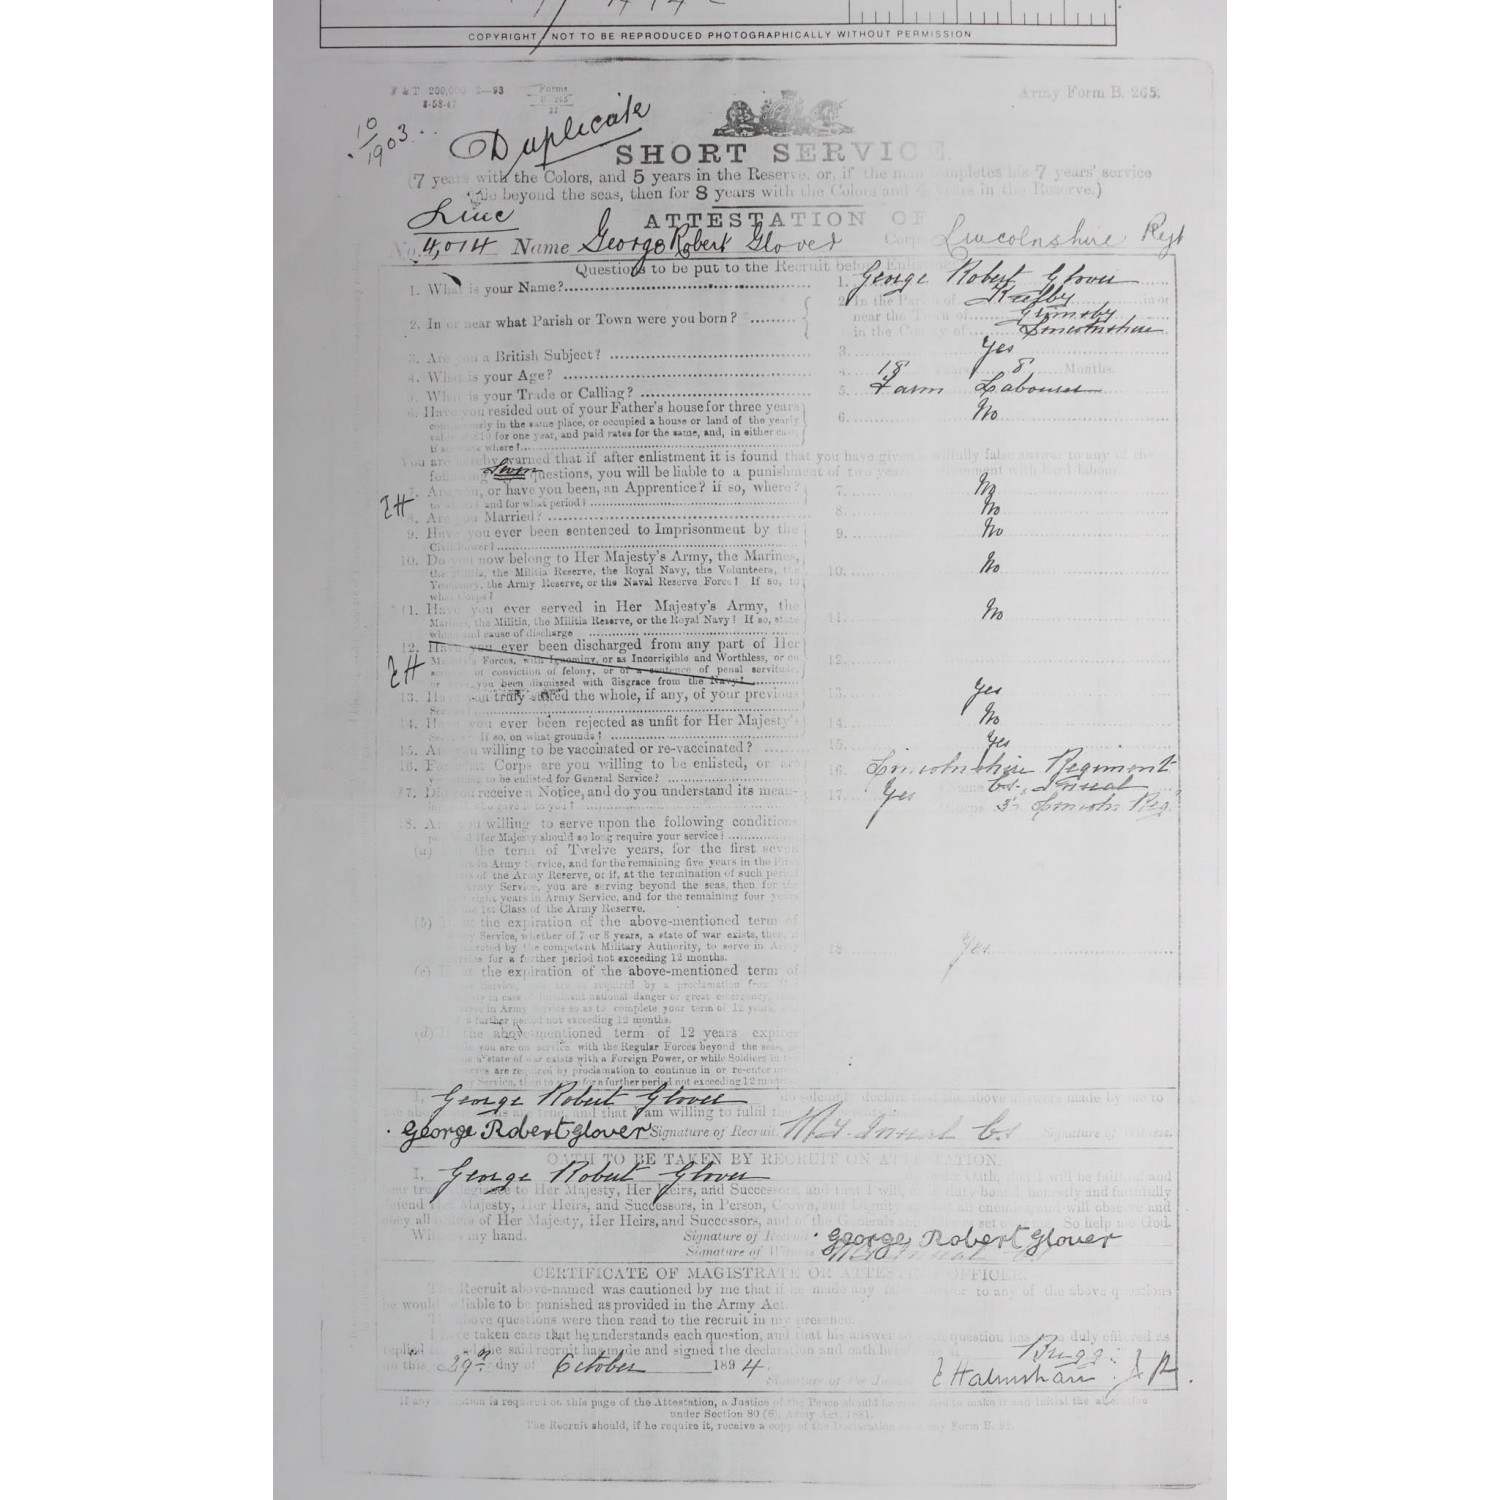 COPYRIGHT / NOT TO BE REPRODUCED PHOTOGRAPHICALLY WITHOUT PERMISSION
Forms
Army Form B. 265.
10/1903
Duplicate
SHORT SERVICE.
(7 years with the Colors, and 5 years in the Reserve, or, if the man completes his 7 years' service
beyond the seas, then for 8 years with the Colors and 4 years in the Reserve.)
Linc
ATTESTATION OF
No. 4,014 Name George Robert Glover Corps Lincolnshire Regt
Questions to be put to the Recruit before Enlistment
1. What is your Name? 1. George Robert Glover
2. In or near what Parish or Town were you born? 2. In the Parish of in or
near the Town of Grimsby
in the County of Lincolnshire
3. Are you a British Subject? 3. Yes
4. What is your Age? 4. 18 years 8 Months.
5. What is your Trade or Calling? 5. Farm Labourer
6. Have you resided out of your Father's house for three years 6. No
in the same place, or occupied a house or land of the yearly
for one year, and paid rates for the same, and, in either case,
where?
You are hereby warned that if after enlistment it is found that you have given a wilfully false answer to any of the
following questions, you will be liable to a punishment of two years' imprisonment with hard labour.
7. Are you, or have you been, an Apprentice? if so, where? 7. No
and for what period?
EH
8. Are you Married? 8. No
9. Have you ever been sentenced to Imprisonment by the 9. No
Civil Power?
10. Do you now belong to Her Majesty's Army, the Marines, 10. No
the Militia, the Militia Reserve, the Royal Navy, the Volunteers, the
Yeomanry, the Army Reserve, or the Naval Reserve Force? If so, to
what Corps?
11. Have you ever served in Her Majesty's Army, the 11. No
Marines, the Militia, the Militia Reserve, or the Royal Navy? If so, state
which and cause of discharge
12. Have you ever been discharged from any part of Her 12.
Majesty's Forces, with Ignominy, or as Incorrigible and Worthless, or on
of conviction of felony, or of a sentence of penal servitude,
or have you been dismissed with disgrace from the Navy?
EH
13. Have you truly stated the whole, if any, of your previous 13. Yes
14. Have you ever been rejected as unfit for Her Majesty's 14. No
If so, on what grounds?
15. Are you willing to be vaccinated or re-vaccinated? 15. Yes
16. For what Corps are you willing to be enlisted, or are 16. Lincolnshire Regiment
you willing to be enlisted for General Service?
17. Did you receive a Notice, and do you understand its mean- 17. Yes Name
Corps
18. Are you willing to serve upon the following conditions
Her Majesty should so long require your service?
(a) the term of Twelve years, for the first seven
years in Army Service, and for the remaining five years in the First
Class of the Army Reserve, or if, at the termination of such period
of Army Service, you are serving beyond the seas, then for the
first eight years in Army Service, and for the remaining four years
in the 1st Class of the Army Reserve.
(b) the expiration of the above-mentioned term of
Army Service, whether of 7 or 8 years, a state of war exists, then, if
directed by the competent Military Authority, to serve in Army
Service for a further period not exceeding 12 months.
18. Yes
(c) If at the expiration of the above-mentioned term of
Service, you are so required by a proclamation from Her
Majesty in case of imminent national danger or great emergency,
serve in Army Service so as to complete your term of 12 years, and
a further period not exceeding 12 months.
(d) If the above-mentioned term of 12 years expires
you are on service with the Regular Forces beyond the seas,
a state of war exists with a Foreign Power, or while Soldiers in
are required by proclamation to continue in or re-enter
Army Service, then to for a further period not exceeding 12 months
I, George Robert Glover do solemnly declare that the above answers made by me to
the above questions are true, and that I am willing to fulfil the
George Robert Glover Signature of Recruit. Signature of Witness.
OATH TO BE TAKEN BY RECRUIT ON ATTESTATION.
I, George Robert Glover make Oath, that I will be faithful and
bear true allegiance to Her Majesty, Her Heirs, and Successors, and that I will, as in duty bound, honestly and faithfully
defend Her Majesty, Her Heirs, and Successors, in Person, Crown, and Dignity against all enemies, and will observe and
obey all orders of Her Majesty, Her Heirs, and Successors, and of the Generals and Officers set over me. So help me God.
Witness my hand. Signature of Recruit George Robert Glover
Signature of Witness
CERTIFICATE OF MAGISTRATE OR ATTESTING OFFICER.
The Recruit above-named was cautioned by me that if he made any false answer to any of the above questions
he would be liable to be punished as provided in the Army Act.
The above questions were then read to the recruit in my presence.
I have taken care that he understands each question, and that his answer to each question has been duly entered as
replied to, and the said recruit has made and signed the declaration and oath before me at Brigg
on this 29th day of October 1894.
Signature of the Justice J.P.
If any alteration is required on this page of the Attestation, a Justice of the Peace should be requested to make it and initial the alteration
under Section 80 (6), Army Act, 1881.
The Recruit should, if he require it, receive a copy of the Declaration on Army Form B.